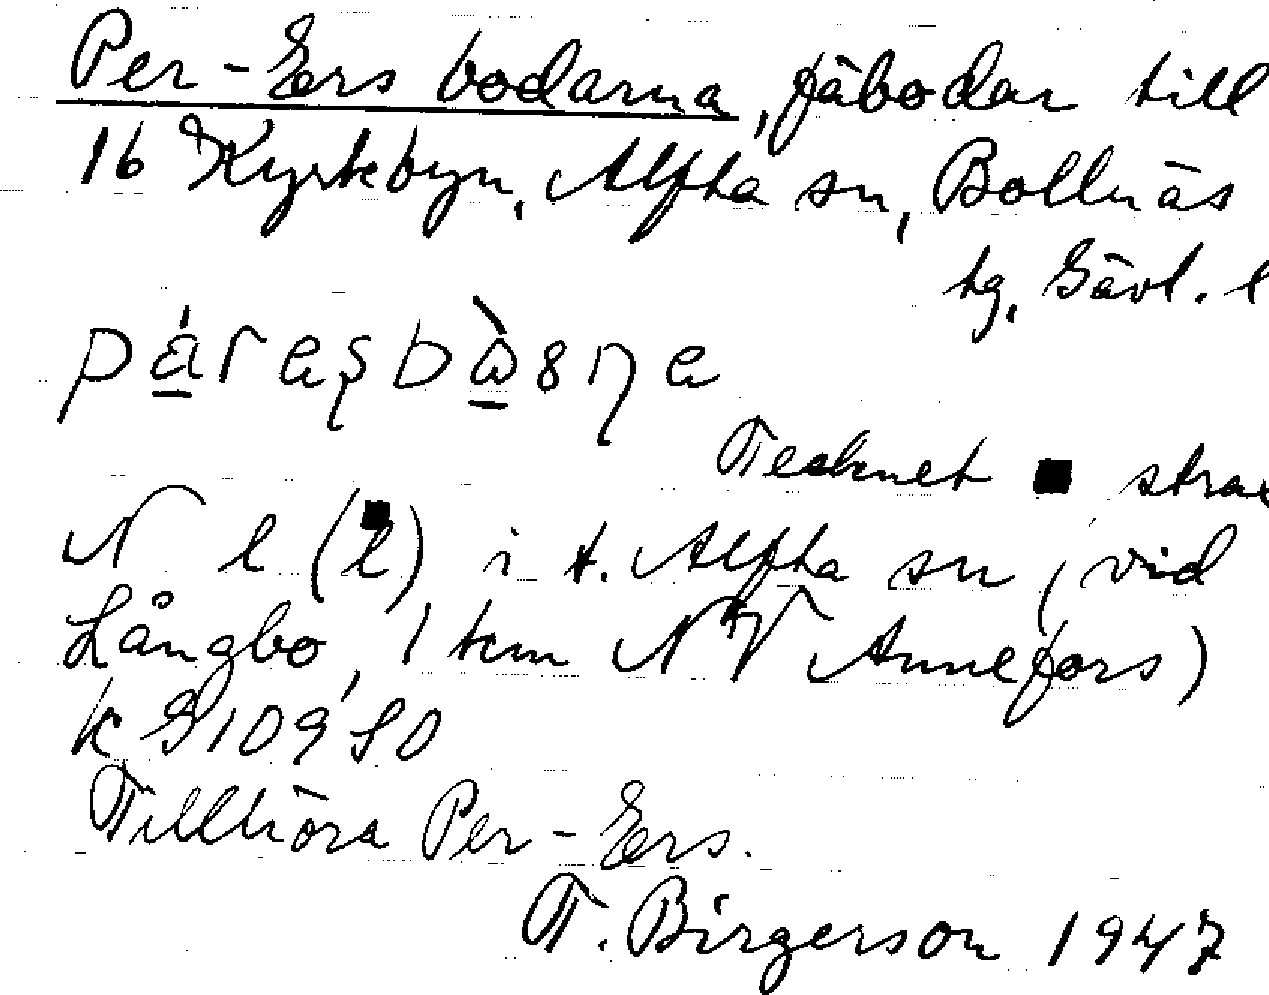 Per-Ers bodarna, fäbodar till
16 Kyrkbyn, Alfta sn, Bollnäs
tg, Gävl. l
Tecknet ■ strax
N l (l) i t. Alfta sn (vid
Långbo, 1 km NV Annefors)
k G109 SO
Tillhöra Per-Ers.
T. Birgerson 1947